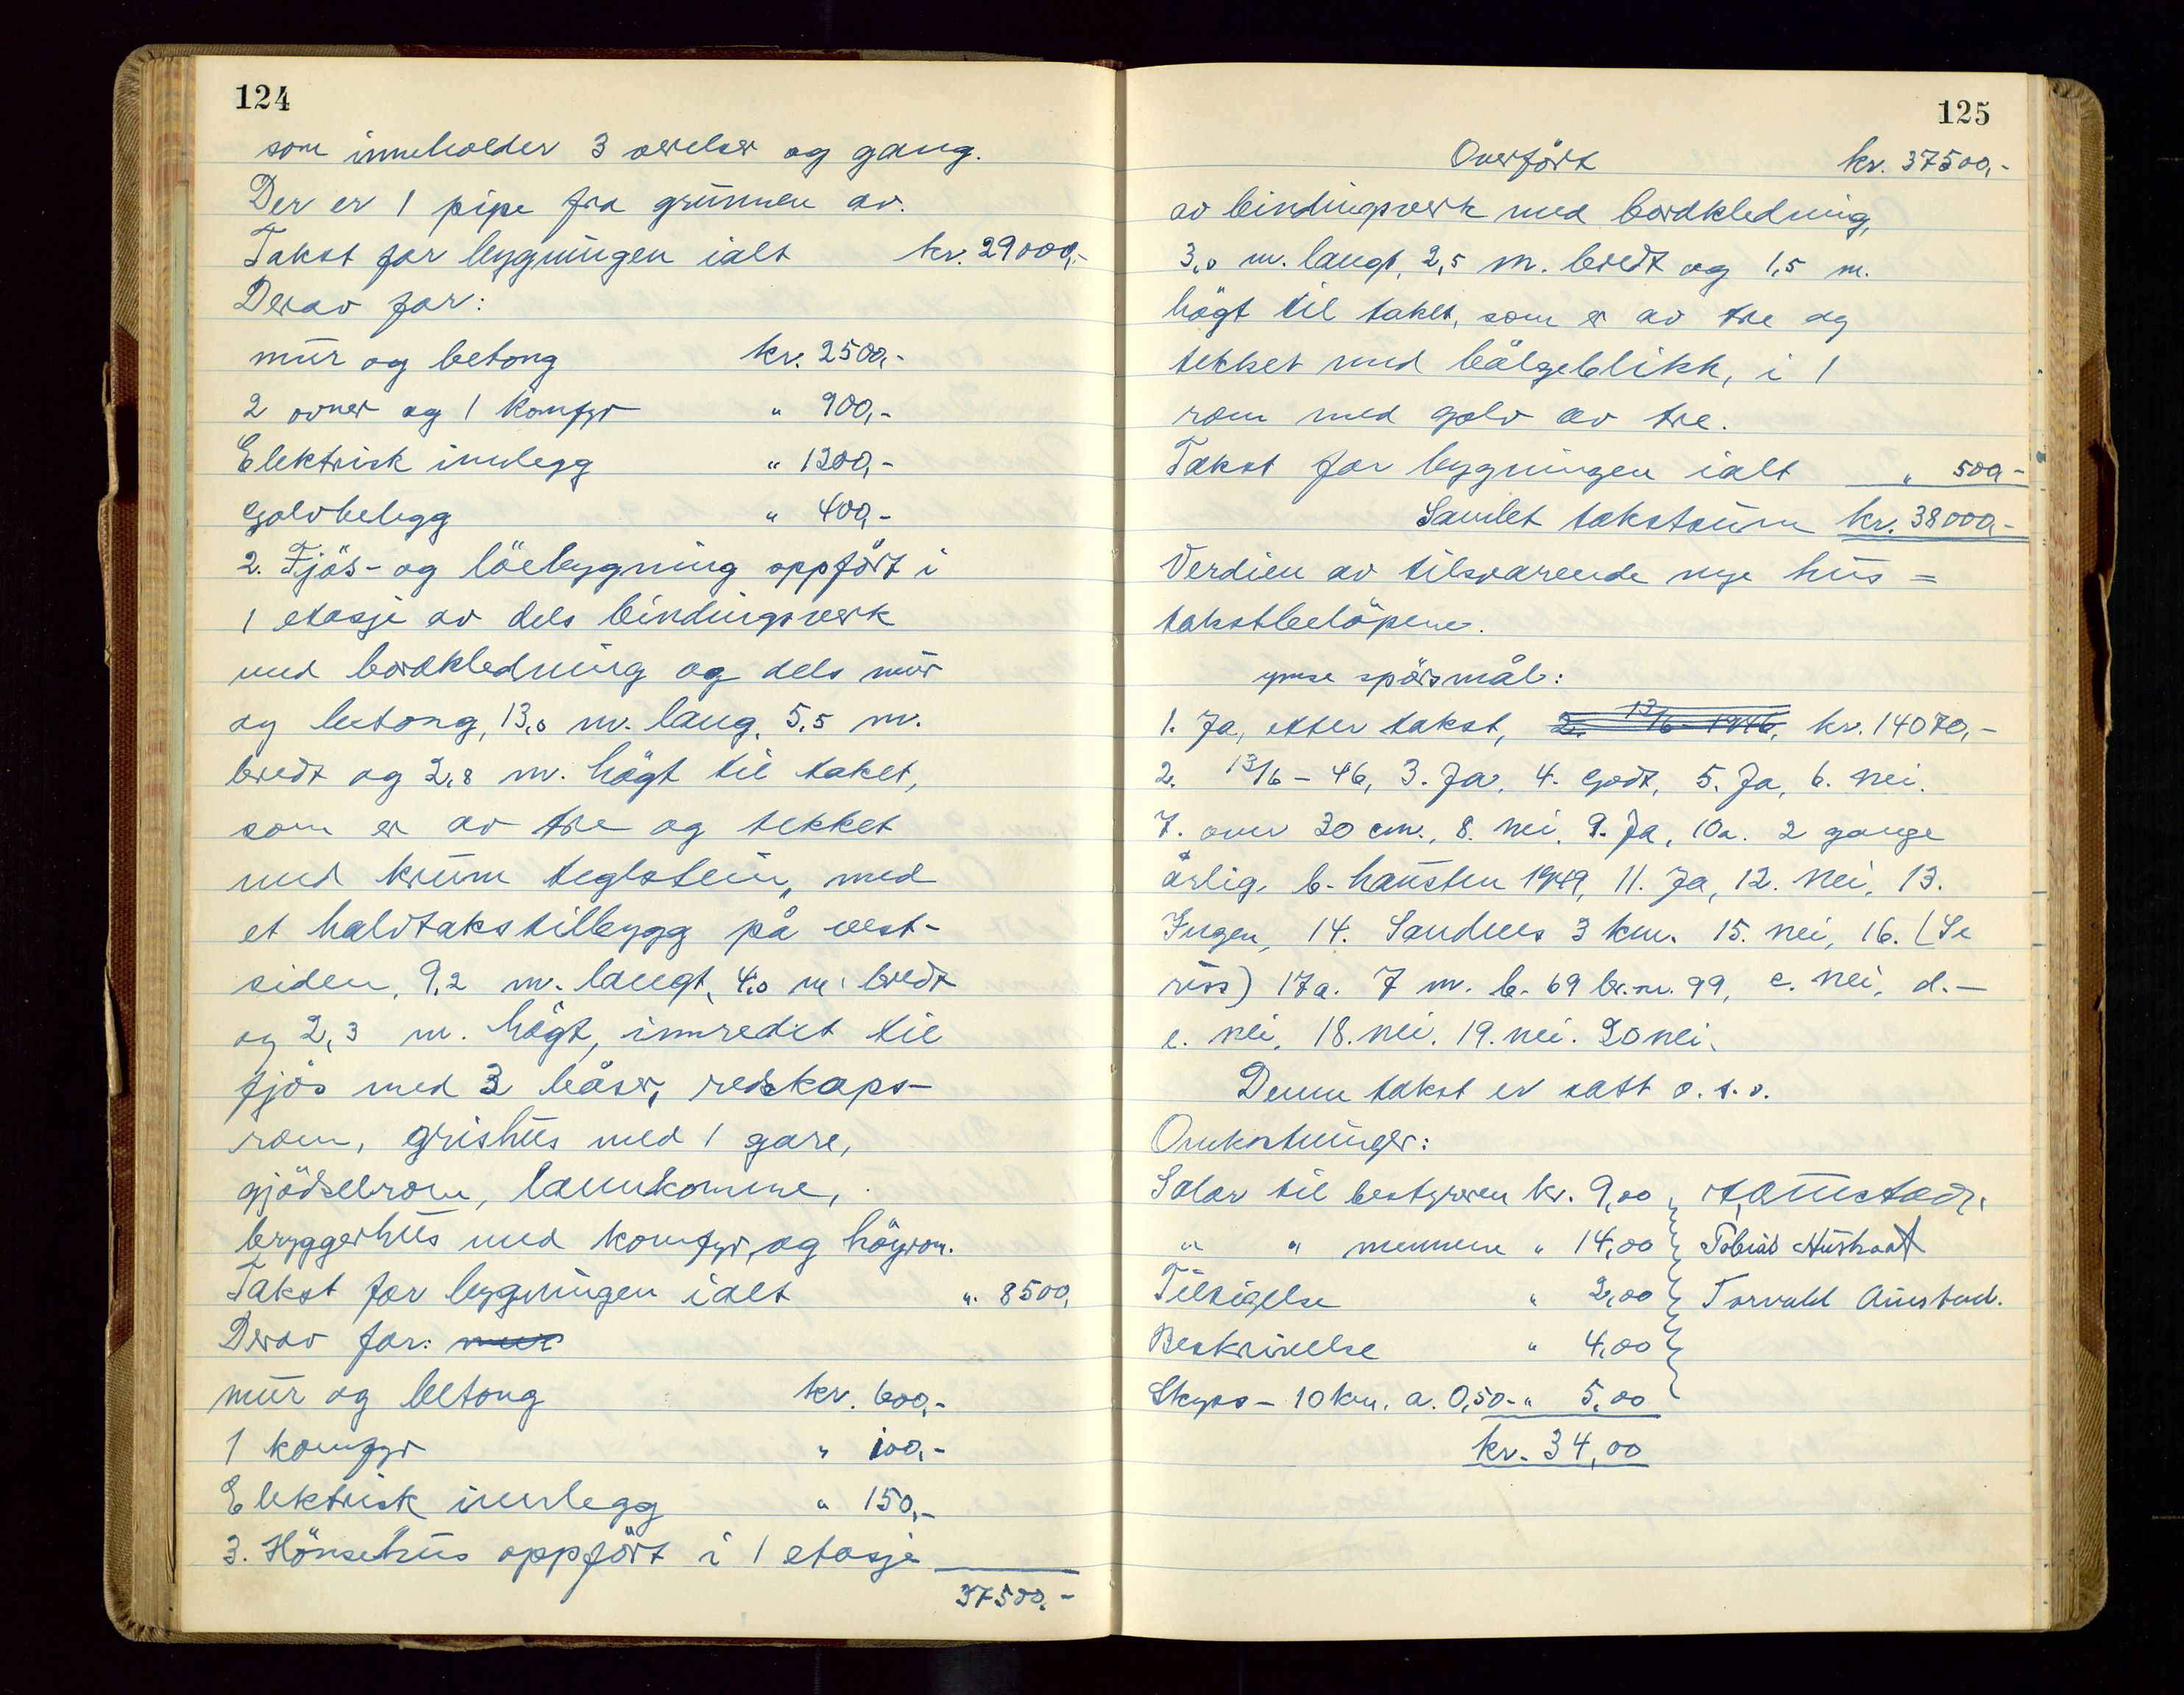 124
som inneholder 3 værelser og gang.
Der er 1 pipe fra grunnen av.
Takst for bygningen ialt kr. 29000,-
Derav for:
mur og betong kr. 2500,-
2 ovner og 1 komfyr " 900,-
Elektrisk innlegg " 1200,-
Golvbelegg " 400,-
2. Fjös- og löebygning oppfört i
1 etasje av dels bindingsverk
med bordkledning og dels mur
og betong, 13,0 m. lang, 5,5 m.
bredt og 2,8 m. högt til taket,
som er av tre og tekket
med krum teglstein, med
et halvtakstilbygg på vest-
siden, 9,2 m. langt, 4,0 m. bredt
og 2,3 m. högt, innredet til
fjös med 3 båser, redskaps-
rom, grishus med 1 gare,
gjödselrom, lannkomme,
bryggerhus med komfyr, og höyrom.
Takst for bygningen ialt ". 8500,
Derav for: mur
mur og betong kr. 600,-
1 komfyr " 100,-
Elektrisk innlegg " 150,-
3. Hönsehus oppfört i 1 etasje
37500,-
125
Overfört kr. 37500,-
av bindingsverk med bordkledning,
3,0 m. langt, 2,5 m. bredt og 1,5 m.
högt til taket, som er av tre og
tekket med bölgeblikk, i 1
rom med golv av tre.
Takst for bygningen ialt " 500,-
Samlet takstsum kr. 38000,-
Verdien av tilsvarende nye hus =
takstbelöpene.
ymse spörsmål:
1. Ja, etter takst, 2. 13/6-1946, kr. 14070,-
2. 13/6-46, 3. Ja, 4. Godt, 5. Ja, 6. nei.
7. over 30 cm., 8. nei, 9. Ja, 10a. 2 gange
årlig, b. hausten 1949, 11. Ja, 12. nei, 13.
Ingen, 14. Sandnes 3 km. 15. nei, 16. (Se
riss) 17a. 7 m. b. 69 br.nr. 99, c. nei, d. -
e. nei, 18. nei. 19. nei. 20 nei.
Denne takst er satt o. s. v.
Omkostninger:
Salar til bestyreren kr. 9,00
" " mennene " 14,00 Tobias Austraat
Tilsigelse " 2,00 Torvald Austad.
Beskrivelse " 4,00
Skyss - 10 km. a. 0,50- " 5,00
kr. 34,00